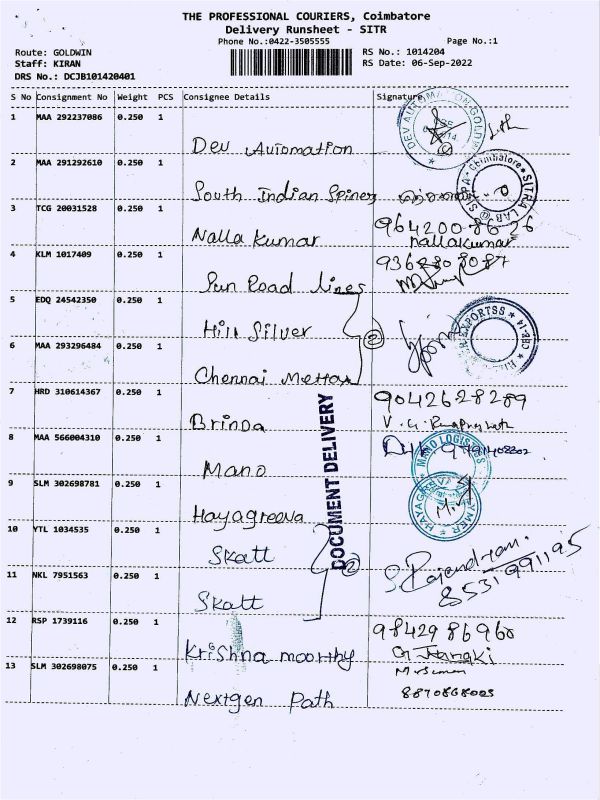 THE PROFESSIONAL COURIERS, Coimbatore
Delivery Runsheet - SITR
Phone No.:0422-3505555 Page No.:1
Route: GOLDWIN RS No.: 1014204
Staff: KIRAN RS Date: 06-Sep-2022
DRS No.: DCJB101420401
S No Consignment No Weight PCS Consignee Details Signature
1 MAA 292237086 0.250 1
Dev Automation
2 MAA 291292610 0.250 1
South Indian Spines
3 TCG 20031528 0.250 1 9642008626
Nalla Kumar nallakumar
4 KLM 1017409 0.250 1 9362808087
Sun Road lines
5 EDQ 24542350 0.250 1
Hill Silver
6 MAA 293296484 0.250 1 2
Chennai Mettax
7 HRD 310614367 0.250 1 9042628289
Brinda V. G.
8 MAA 566004310 0.250 1
Mano MANO LOGISTICS
9 SLM 302698781 0.250 1
Hayagreeva
DOCUMENT DELIVERY
10 YTL 1034535 0.250 1
Skatt
11 NKL 7951563 0.250 1 2 S. Rajendran.
Skatt 8531991195
12 RSP 1739116 0.250 1 9842986960
Krishna moorthy G Janaki
13 SLM 302698075 0.250 1
Nextgen Path 8870868003